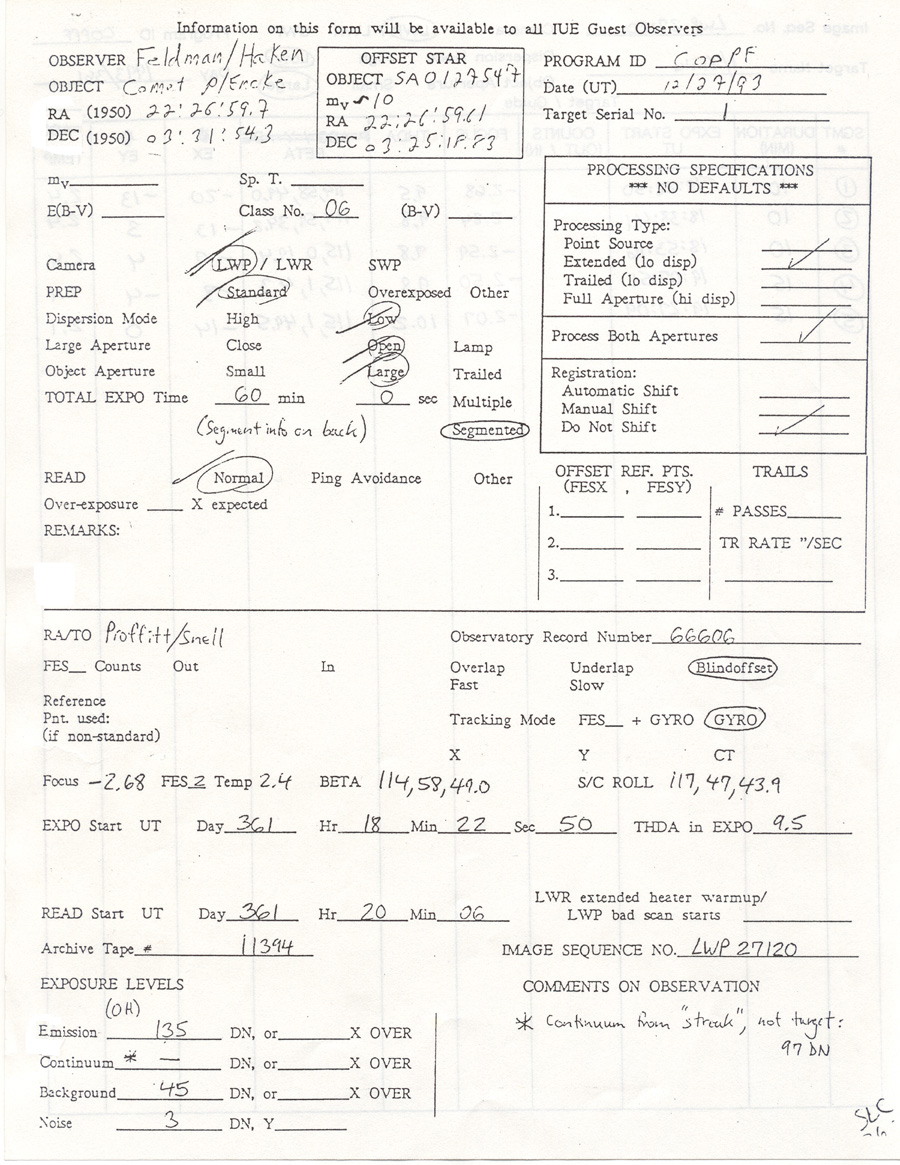 Information on this form will be available to all IUE Guest Observers
OBSERVER Feldman/Haken
OBJECT Comet P/Encke
RA (1950) 22:26:59.7
DEC (1950) 03:31:54.3
OFFSET STAR
OBJECT SAO127547
mv ~10
RA 22:26:59.61
DEC 03:25:18.83
PROGRAM ID COPPF
Date (UT) 12/27/93
Target Serial No. 1
mv
Sp. T.
E(B-V)
Class No. 06
(B-V)
PROCESSING SPECIFICATIONS
*** NO DEFAULTS ***
Processing Type:
Point Source
Extended (lo disp)
Trailed (lo disp)
Full Aperture (hi disp)
Process Both Apertures
Registration:
Automatic Shift
Manual Shift
Do Not Shift
Camera LWP / LWR SWP
PREP Standard Overexposed Other
Dispersion Mode High Low
Large Aperture Close Open Lamp
Object Aperture Small Large Trailed
TOTAL EXPO Time 60 min 0 sec Multiple
(Segment info on back) Segmented
READ Normal Ping Avoidance Other
Over-exposure X expected
REMARKS:
OFFSET REF. PTS.
(FESX , FESY)
1.
2.
3.
TRAILS
# PASSES
TR RATE "/SEC
RA/TO Proffitt/Snell
Observatory Record Number 66606
FES Counts Out In
Overlap Underlap Blindoffset
Fast Slow
Reference
Pnt. used:
(if non-standard)
Tracking Mode FES + GYRO GYRO
X Y CT
Focus -2.68 FES 2 Temp 2.4 BETA 114,58,49.0 S/C ROLL 117,47,43.9
EXPO Start UT Day 361 Hr 18 Min 22 Sec 50 THDA in EXPO 9.5
LWR extended heater warmup/
LWP bad scan starts
READ Start UT Day 361 Hr 20 Min 06
Archive Tape # 11394
IMAGE SEQUENCE NO. LWP 27120
EXPOSURE LEVELS
(OH)
Emission 135 DN, or X OVER
Continuum * — DN, or X OVER
Background 45 DN, or X OVER
Noise 3 DN, Y
COMMENTS ON OBSERVATION
* Continuum from "streak", not target:
97 DN